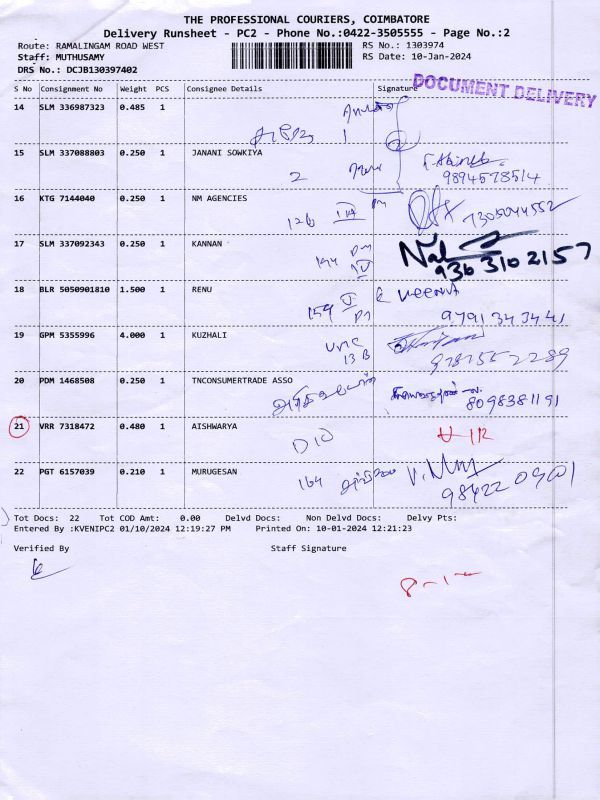 THE PROFESSIONAL COURIERS, COIMBATORE
Delivery Runsheet - PC2 - Phone No.:0422-3505555 - Page No.:2
Route: RAMALINGAM ROAD WEST
RS No.: 1303974
Staff: MUTHUSAMY
RS Date: 10-Jan-2024
DRS No.: DCJB130397402
DOCUMENT DELIVERY
S No Consignment No Weight PCS Consignee Details Signature
14 SLM 336987323 0.485 1
1
15 SLM 337088803 0.250 1 JANANI SOWKIYA
2
9894578514
16 KTG 7144040 0.250 1 NM AGENCIES
126 7305044552
17 SLM 337092343 0.250 1 KANNAN
194 9363102157
18 BLR 5050901810 1.500 1 RENU
159 Meena
9791343441
19 GPM 5355996 4.000 1 KUZHALI
13 B
9787552289
20 PDM 1468508 0.250 1 TNCONSUMERTRADE ASSO
8098381191
21 VRR 7318472 0.480 1 AISHWARYA
D10
22 PGT 6157039 0.210 1 MURUGESAN
164
98422 09001
Tot Docs: 22 Tot COD Amt: 0.00 Delvd Docs: Non Delvd Docs: Delvy Pts:
Entered By :KVENIPC2 01/10/2024 12:19:27 PM Printed On: 10-01-2024 12:21:23
Verified By Staff Signature